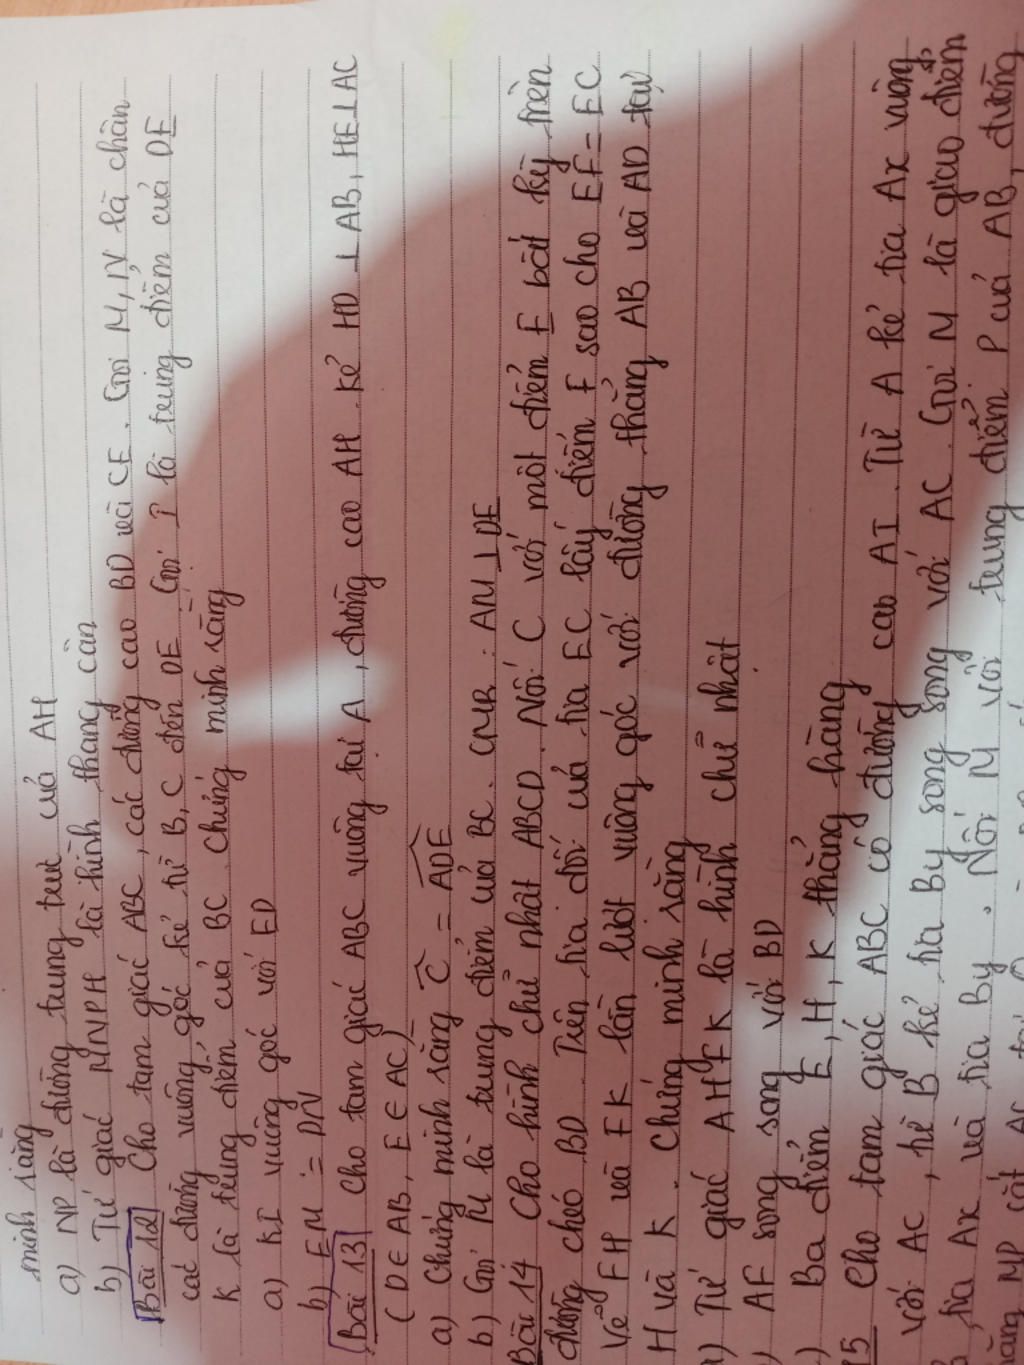 minh rằng
a) NP là đường trung trực của AH
b) Tứ giác MNPH là hình thang cân
Bài 12 Cho tam giác ABC, các đường cao BD và CE. Gọi M, N là chân
các đường vuông góc kẻ từ B, C đến DE. Gọi I là trung điểm của DE
K là trung điểm của BC. Chứng minh rằng
a) KI vuông góc với ED
b) EM = DN
Bài 13 Cho tam giác ABC vuông tại A, đường cao AH. Kẻ HD ⊥ AB, HE ⊥ AC
(D ∈ AB, E ∈ AC)
a) Chứng minh rằng Ĉ = ADE
b) Gọi M là trung điểm của BC. CMR: AM ⊥ DE
Bài 14 Cho hình chữ nhật ABCD. Nối C với một điểm E bất kỳ trên
đường chéo BD. Trên tia đối của tia EC lấy điểm F sao cho EF = EC
Vẽ FH và FK lần lượt vuông góc với đường thẳng AB và AD tại
H và K. Chứng minh rằng
) Tứ giác AHFK là hình chữ nhật
) AF song song với BD
) Ba điểm E, H, K thẳng hàng
5 Cho tam giác ABC có đường cao AI. Từ A kẻ tia Ax vuông
với AC, từ B kẻ tia By song song với AC. Gọi M là giao điểm
tia Ax và tia By. Nối M với trung điểm P của AB, đường
MP cắt AC tại